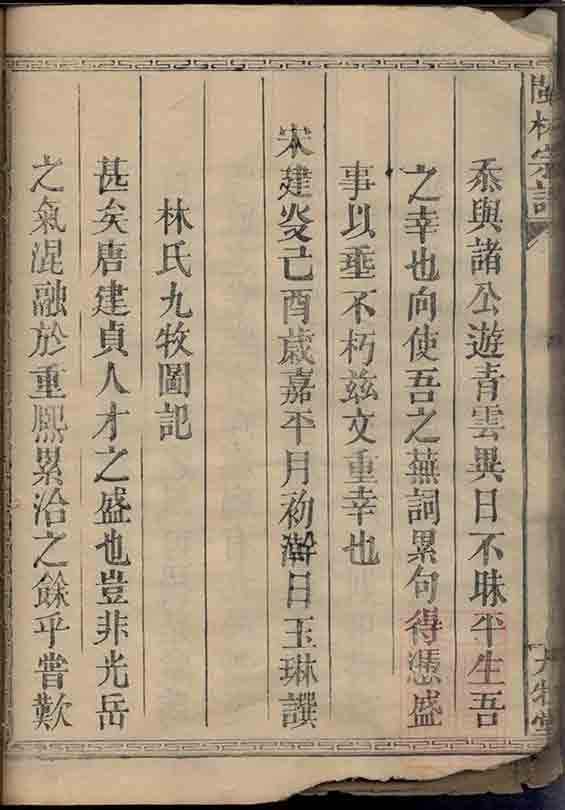 閩林宗譜
忝與諸公遊青雲異日不昧平生吾
之幸也向使吾之蕪詞累句得憑盛
事以垂不朽兹文重幸也
宋建炎己酉歲嘉平月初澣日玉琳譔
林氏九牧圖記
甚矣唐建貞人才之盛也豈非光岳
之氣混融於重熈累洽之餘乎嘗歎
九牧堂